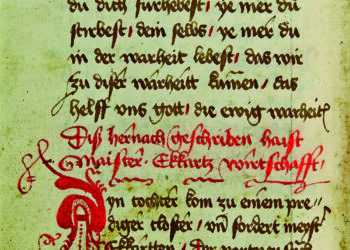 du dich furhebest / ye mer du
stirbest / dein selbs / ye mer du
in der warheit lebest / das wir
zu diser warheitt kumen / das
helff vns gott / die ewig warheit
Diß hernach geschriben haist
Maister Ekkartz wirtschafft /
Eyn tochter kom zu einem pre⸗
diger closter / vn̄ fordert meyst̾
Ekkartten / der portner